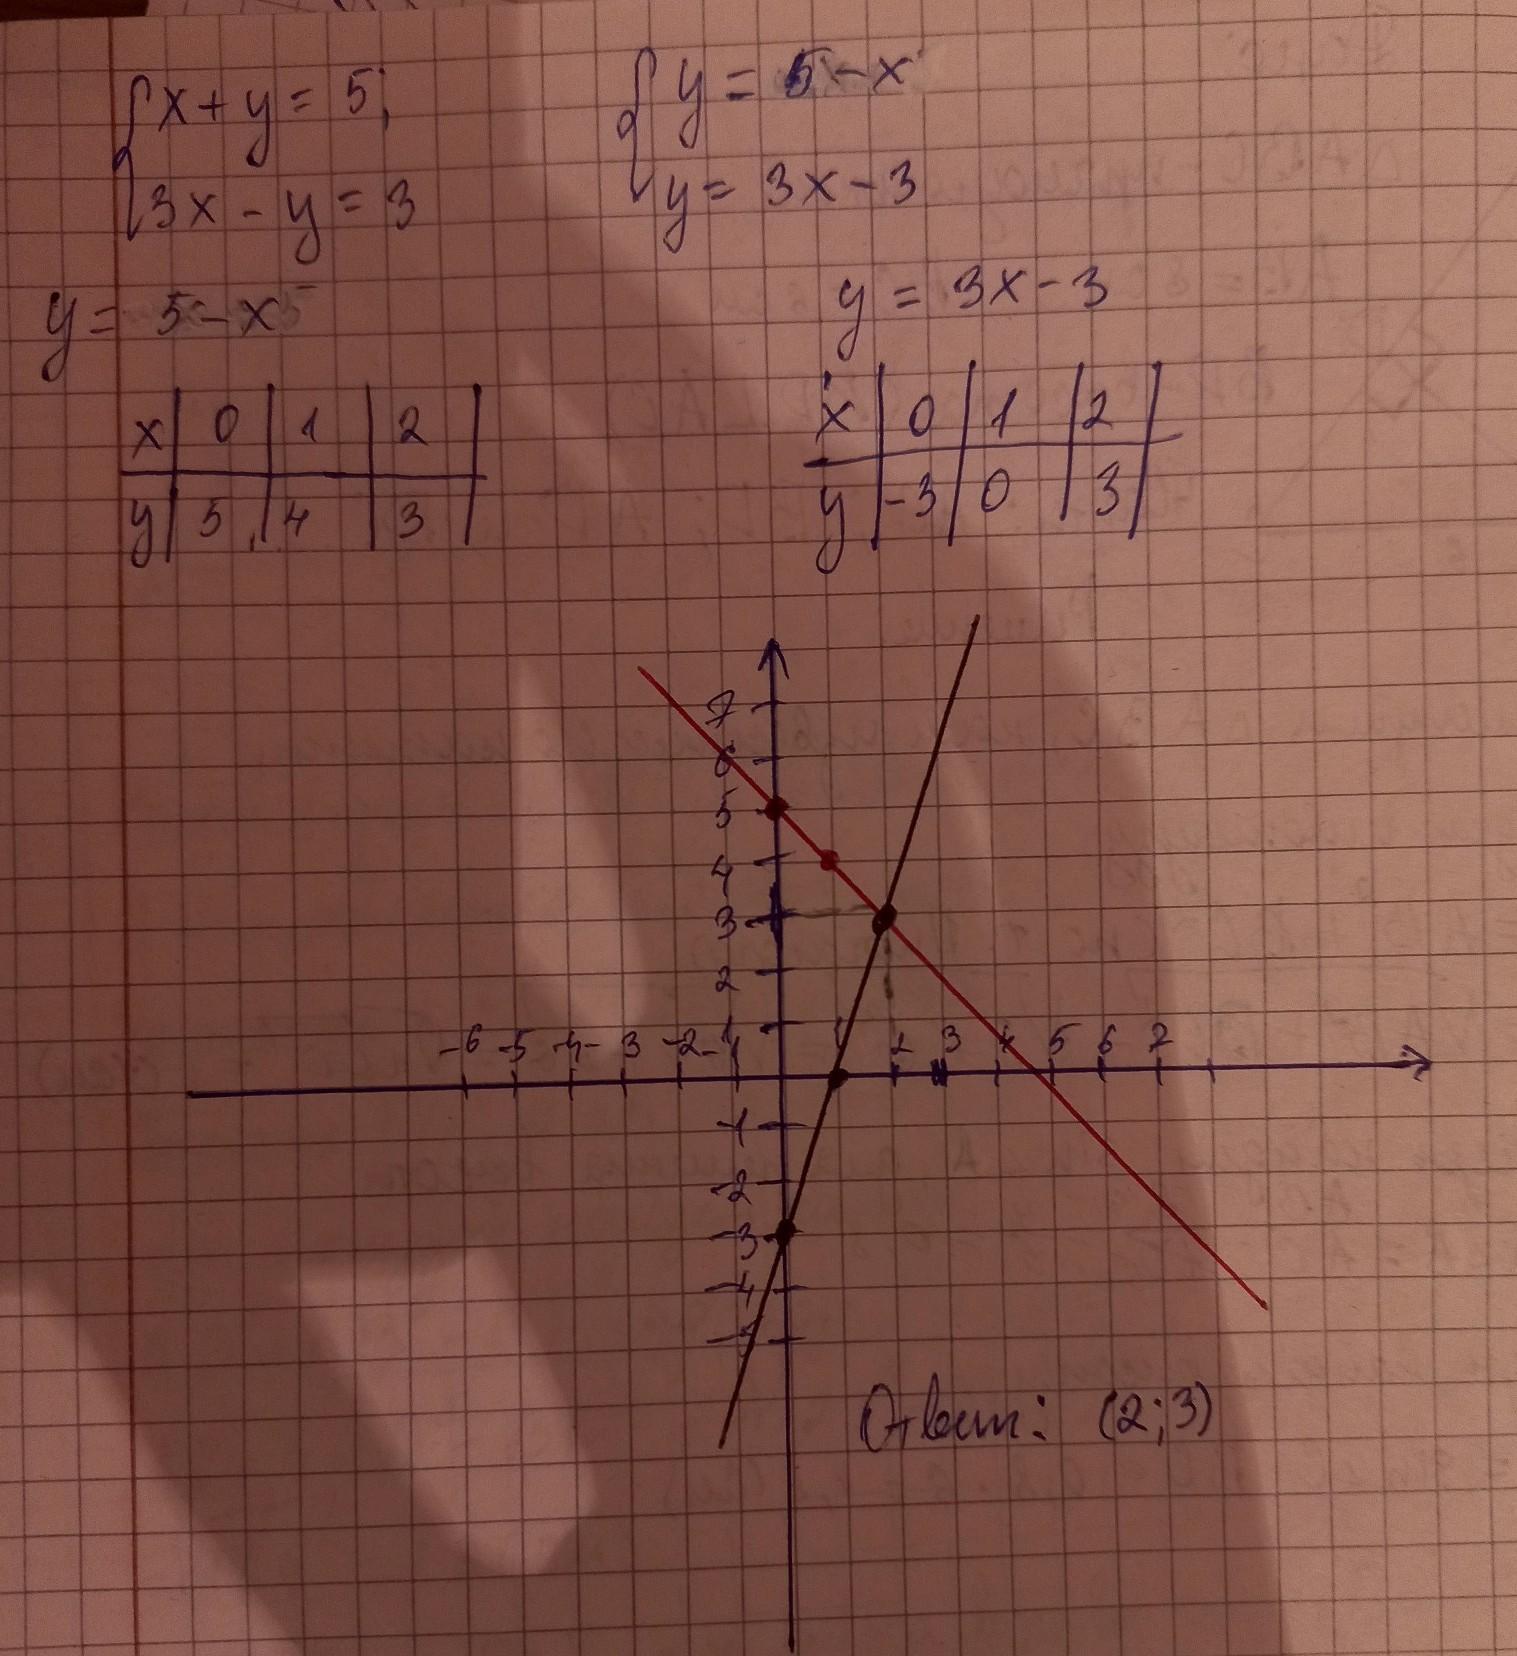 {x + y = 5;
{3x - y = 3
{y = 5 - x
{y = 3x - 3
y = 5 - x
x | 0 | 1 | 2 |
y | 5 | 4 | 3 |
y = 3x - 3
x | 0 | 1 | 2 |
y | -3 | 0 | 3 |
7
6
5
4
3
2
1
-6 -5 -4 -3 -2 -1 1 2 3 4 5 6 7
-1
-2
-3
-4
-5
Ответ: (2;3)